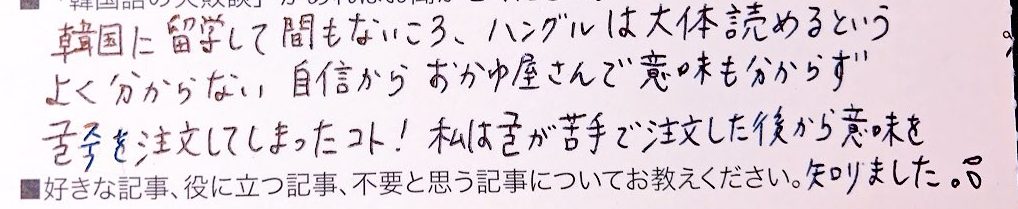 ■「韓国語の失敗談」があればお聞かせください。
韓国に留学して間もないころ、ハングルは大体読めるという
よく分からない自信からおかゆ屋さんで意味も分からず
굴죽を注文してしまったコト！私は굴が苦手で注文した後から意味を
■好きな記事、役に立つ記事、不要と思う記事についてお教えください。知りました。